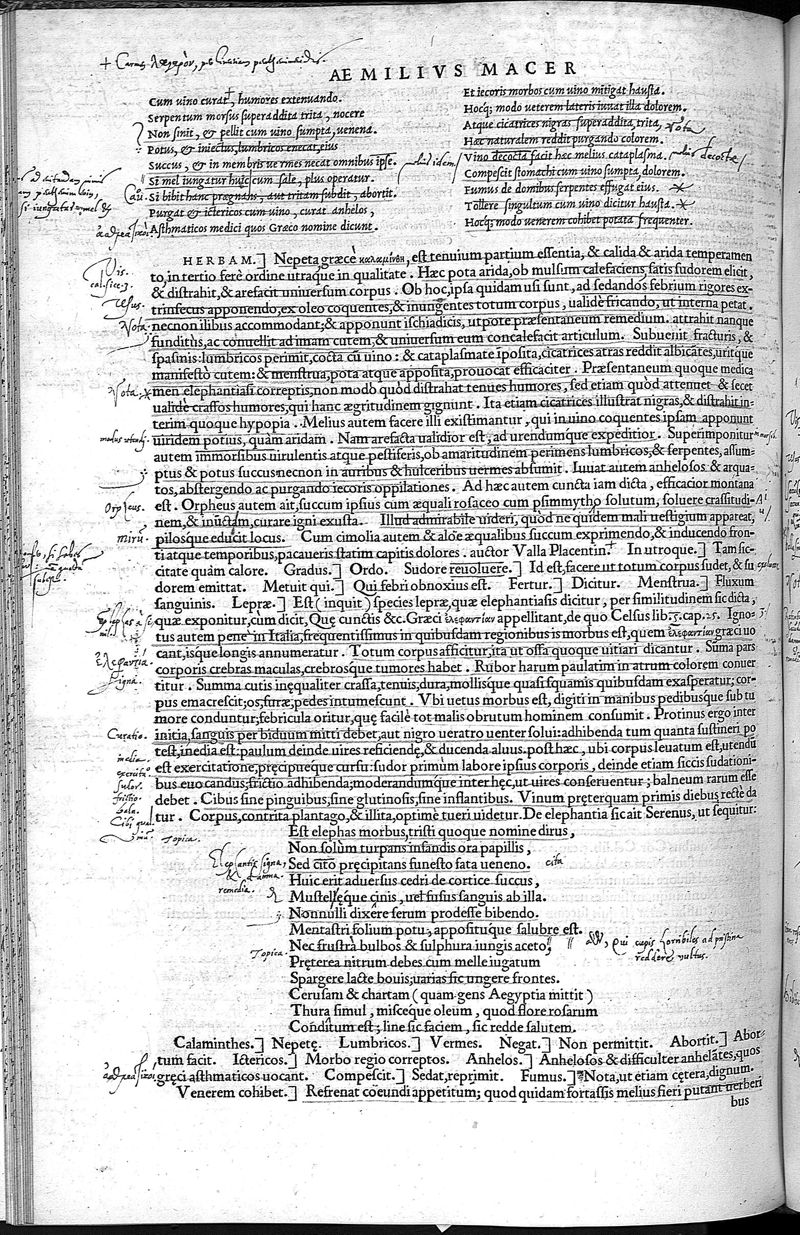 AEMILIVS MACER
Cum uino curat, humores extenuando.
Serpentum morsus superaddita trita, nocere
Non sinit, & pellit cum uino sumpta, uenena.
Potus, & iniectus, lumbricos enecat, eius
Succus, & in membris uermes necat omnibus ipse.
Si mel iungatur huic cum sale, plus operatur.
Si bibit hanc prægnans, aut tritam subdit, abortit.
Purgat & ictericos cum uino, curat anhelos,
Asthmaticos medici quos Græco nomine dicunt.
Et iecoris morbos cum uino mitigat hausta.
Hocq; modo ueterem lateris iuuat illa dolorem.
Atque cicatrices nigras superaddita, trita,
Hac naturalem reddit purgando colorem.
Vino decocta facit hæc melius cataplasma.
Compescit stomachi cum uino sumpta, dolorem.
Fumus de domibus serpentes effugat eius.
Tollere singultum cum uino dicitur hausta.
Hocq; modo uenerem cohibet potata frequenter.
HERBAM.] Nepeta græcè καλαμίνθη, est tenuium partium essentia, & calida & arida temperamen
to, in tertio ferè ordine utraque in qualitate. Hæc pota arida, ob mulsum calefaciens, satis sudorem elicit,
& distrahit, & arefacit uniuersum corpus. Ob hoc, ipsa quidam usi sunt, ad sedandos febrium rigores ex-
trinsecus apponendo, ex oleo coquentes, & inungentes totum corpus, ualidè fricando, ut interna petat.
necnon ilibus accommodant; & apponunt ischiadicis, utpote præsentaneum remedium. attrahit nanque
funditùs, ac conuellit ad imam cutem, & uniuersum eum concalefacit articulum. Subuenit fracturis, &
spasmis: lumbricos perimit, cocta cū uino: & cataplasmate īposita, cicatrices atras reddit albicātes, uritque
manifestò cutem: & menstrua, pota atque apposita, prouocat efficaciter. Præsentaneum quoque medica
men elephantiasi correptis, non modò quòd distrahat tenues humores, sed etiam quòd attenuet & secet
ualidè crassos humores, qui hanc ægritudinem gignunt. Ita etiam cicatrices illustrat nigras, & distrahit in-
terim quoque hypopia. Melius autem facere illi existimantur, qui in uino coquentes ipsam apponunt
uiridem potius, quàm aridam. Nam arefacta ualidior est, ad urendumque expeditior. Superimponitur
autem immorsibus uirulentis atque pestiferis, ob amaritudinem perimens lumbricos, & serpentes, assum-
ptus & potus succus necnon in auribus & hulceribus uermes absumit. Iuuat autem anhelosos & arqua-
tos, abstergendo ac purgando iecoris oppilationes. Ad hæc autem cuncta iam dicta, efficacior montana
est. Orpheus autem ait, succum ipsius cum æquali rosaceo cum psimmytho solutum, soluere crassitudi-
nem, & inūctam, curare igni exusta. Illud admirabile uideri, quòd ne quidem mali uestigium appareat,
pilosque educit locus. Cum cimolia autem & aloë æqualibus succum exprimendo, & inducendo fron-
ti atque temporibus, pacaueris statim capitis dolores. auctor Valla Placentin. In utroque.] Tam sic-
citate quàm calore. Gradus.] Ordo. Sudore reuoluere.] Id est, facere ut totum corpus sudet, & su
dorem emittat. Metuit qui.] Qui febri obnoxius est. Fertur.] Dicitur. Menstrua.] Fluxum
sanguinis. Lepræ.] Est (inquit) species lepræ, quæ elephantiasis dicitur, per similitudinem sic dicta,
quæ exponitur, cùm dicit, Quę cunctis &c. Græci ἐλεφαντίαν appellitant, de quo Celsus lib.3. cap.25. Igno-
tus autem penè in Italia, frequentissimus in quibusdam regionibus is morbus est, quem ἐλεφαντίαν græci uo
cant, isque longis annumeratur. Totum corpus afficitur, ita ut ossa quoque uitiari dicantur. Suma pars
corporis crebras maculas, crebrosque tumores habet. Rubor harum paulatim in atrum colorem conuer
titur. Summa cutis inęqualiter crassa, tenuis, dura, mollisque quasi squamis quibusdam exasperatur; cor-
pus emacrescit; os, suræ, pedes intumescunt. Vbi uetus morbus est, digiti in manibus pedibusque sub tu
more conduntur; febricula oritur, quę facilè tot malis obrutum hominem consumit. Protinus ergo inter
initia, sanguis per biduum mitti debet, aut nigro ueratro uenter solui: adhibenda tum quanta sustineri po
test, inedia est: paulum deinde uires reficiendę, & ducenda aluus. post hæc, ubi corpus leuatum est, utendū
est exercitatione, pręcipueque cursu: sudor primùm labore ipsius corporis, deinde etiam siccis sudationi-
bus euocandus; frictio adhibenda; moderandumque inter hęc, ut uires conseruentur; balneum rarum esse
debet. Cibus sine pinguibus, sine glutinosis, sine inflantibus. Vinum pręterquam primis diebus, rectè da
tur. Corpus, contrita plantago, & illita, optimè tueri uidetur. De elephantia sic ait Serenus, ut sequitur:
Est elephas morbus, tristi quoque nomine dirus,
Non solùm turpans infandis ora papillis,
Sed citò pręcipitans funesto fata ueneno.
Huic erit aduersus cedri de cortice succus,
Mustellęque cinis, uel fusus sanguis ab illa.
Nonnulli dixêre serum prodesse bibendo.
Mentastri folium potu, appositúque salubre est.
Nec frustrà bulbos & sulphura iungis aceto,
Pręterea nitrum debes cum melle iugatum
Spargere lacte bouis; uarias sic ungere frontes.
Cerusam & chartam (quam gens Aegyptia mittit)
Thura simul, misceque oleum, quod flore rosarum
Conditum est; line sic faciem, sic redde salutem.
Calaminthes.] Nepetę. Lumbricos.] Vermes. Negat.] Non permittit. Abortit.] Abor-
tum facit. Ictericos.] Morbo regio correptos. Anhelos.] Anhelosos & difficulter anhelātes, quos
gręci asthmaticos uocant. Compescit.] Sedat, reprimit. Fumus.] Nota, ut etiam cętera, dignum.
Venerem cohibet.] Refrenat coëundi appetitum; quod quidam fortassis melius fieri putant uerberi
bus
Nota
Vis.
Usus.
Nota
Nota
Orpheus.
mirū
Signa.
Curatio.
inedia.
sudor.
frictio
Topica.
remedia.
cita
Topica.